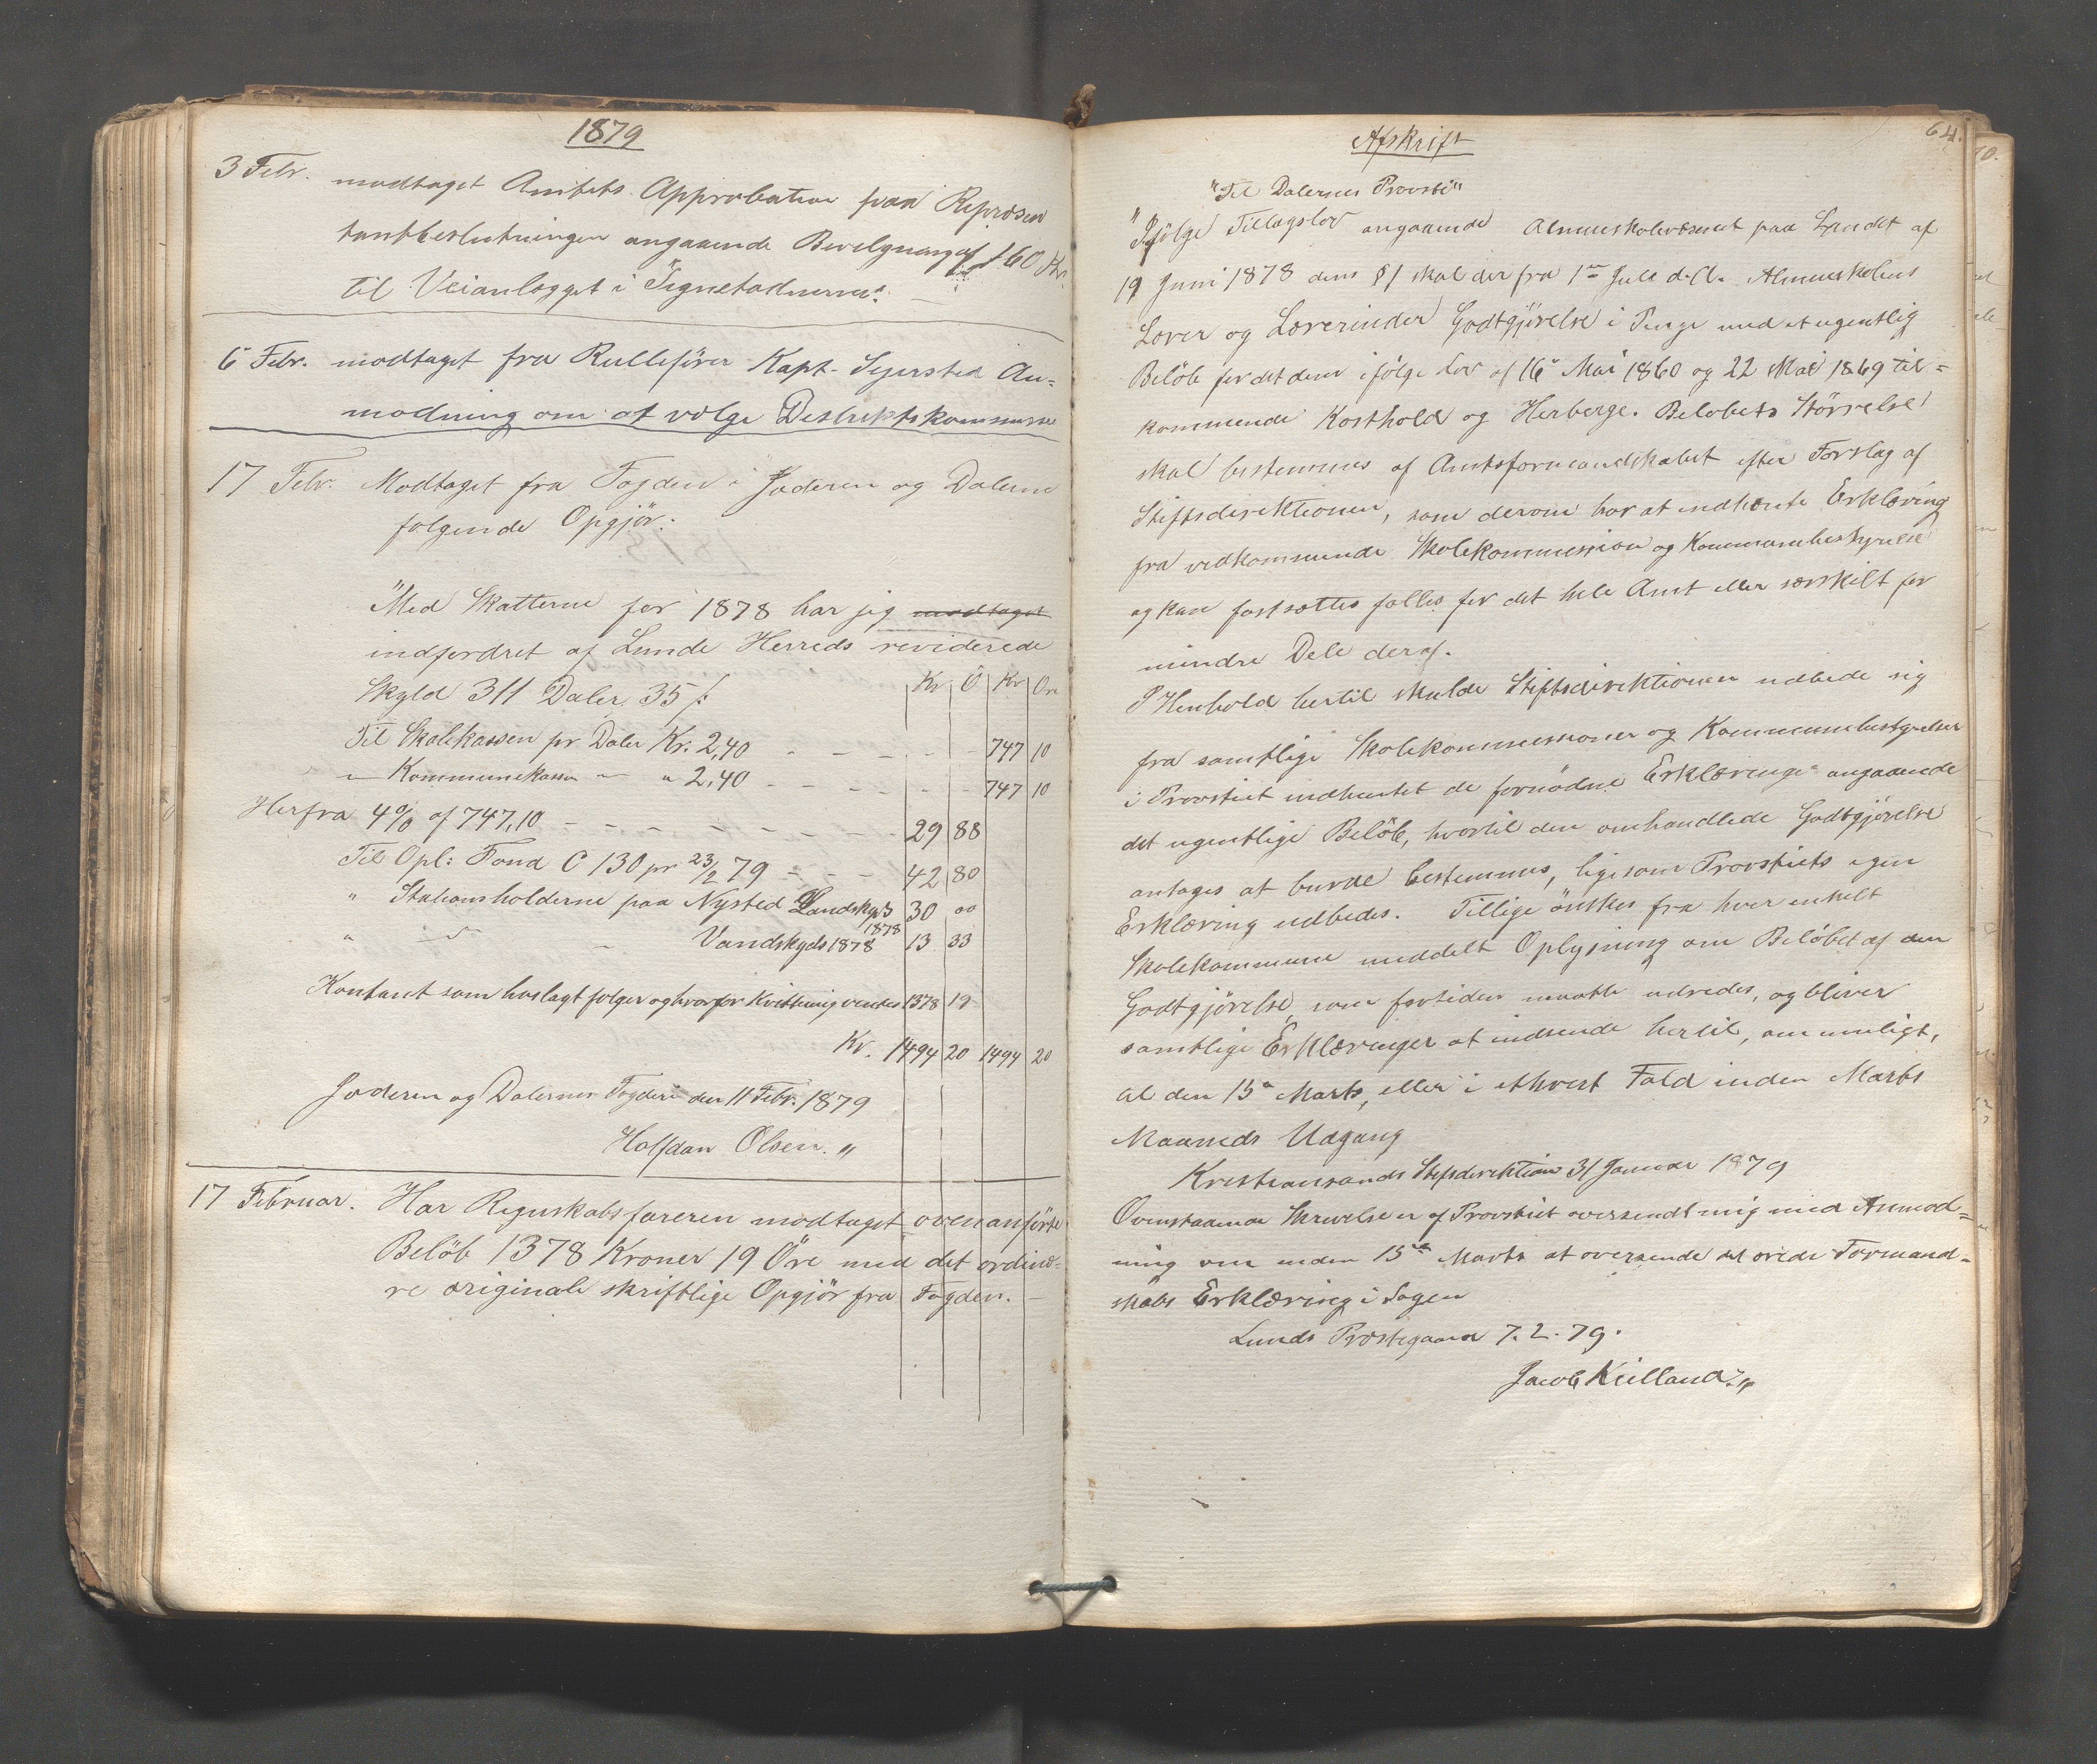 1879
3 Febr. modtaget Amtets Approbation paa Repræsen
tantbeslutningen angaaende Bevilgning af 160 Kr.
til Veianlægget i
6 Febr. modtaget fra Rulleförer Kapt. Sejersted An=
modning om at vælge
17 Febr. Modtaget fra Fogden i Jæderen og Dalerne
følgende Opgjör:
"Med Skatterne for 1878 har jeg modtaget
indfordret af Lunde Herreds reviderede
Skyld 311 Daler 35 ß: Kr Ö Kr Öre
Til Skolekassen pr Daler Kr. 2,40 - - - - - 747 10
" Kommunekassen - " 2,40 - - - - - - 747 10
Herfra 4% af 747,10 - - - - - - - - 29 88
Til Opl: Fond C 130 pr 23/2 79 - - - 42 80
" Stationsholderne paa Nysted Landskyds 1878 30 00
" " - Vandskyds 1878 13 33
Kontant som hoslagt følger og hvorfor Kvittering ventes 1378 19
Kr. 1494 20 1494 20
Jæderen og Dalernes Fogderi den 11 Febr. 1879
Halfdan Olsen. "
17 Februar. Har Regnskabsføreren modtaget ovenanförte
Belöb 1378 Kroner 19 Öre med det ordinæ=
re originale skriftlige Opgjör fra Fogden. -
64.
Afskrift
"Til Dalernes Provsti"
"Ifölge Tillægslov angaaende Almueskolevæsenet paa Landet af
19 Juni 1878 dens § 1 skal der fra 1ste Juli d.A. Almueskolens
Lærer og Lærerinder Godtgjörelse i Penge med et ugentlig
Belöb for det dem ifölge Lov af 16 Mai 1860 og 22 Mai 1869 til=
kommende Kosthold og Herberge. Belöbets Störrelse
skal bestemmes af Amtsformandskabet efter Forslag af
Stiftsdirektionen, som derom har at indhente Erklæring
fra vedkommende Skolekommission og Kommunebestyrelse
og kan fastsættes fælles for det hele Amt eller særskilt for
mindre Dele deraf.
I Henhold hertil skulde Stiftsdirektionen udbede sig
fra samtlige Skolekommissioner og Kommunebestyrelser
i Provstiet indhentet de fornödne Erklæringe angaaende
det ugentlige Belöb, hvortil den omhandlede Godtgjörelse
antages at burde bestemmes, ligesom Provstiets egen
Erklæring udbedes. Tillige önskes fra hver enkelt
Skolekommune meddelt Oplysning om Belöbet af den
Godtgjörelse, som fortiden maatte udredes, og bliver
samtlige Erklæringer at indsende hertil, om muligt,
til den 15de Marts, eller i ethvert Fald inden Marts
Maaneds Udgang
Kristiansands Stiftsdirektion 31 Januar 1879
Ovenstaaende Skrivelse er af Provstiet oversendt mig med Anmod=
ning om inden 15de Marts at oversende det ærede Formand=
skabs Erklæring i Sagen
Lunds Præstegaard 7. 2. 79.
Jacob Kielland. "